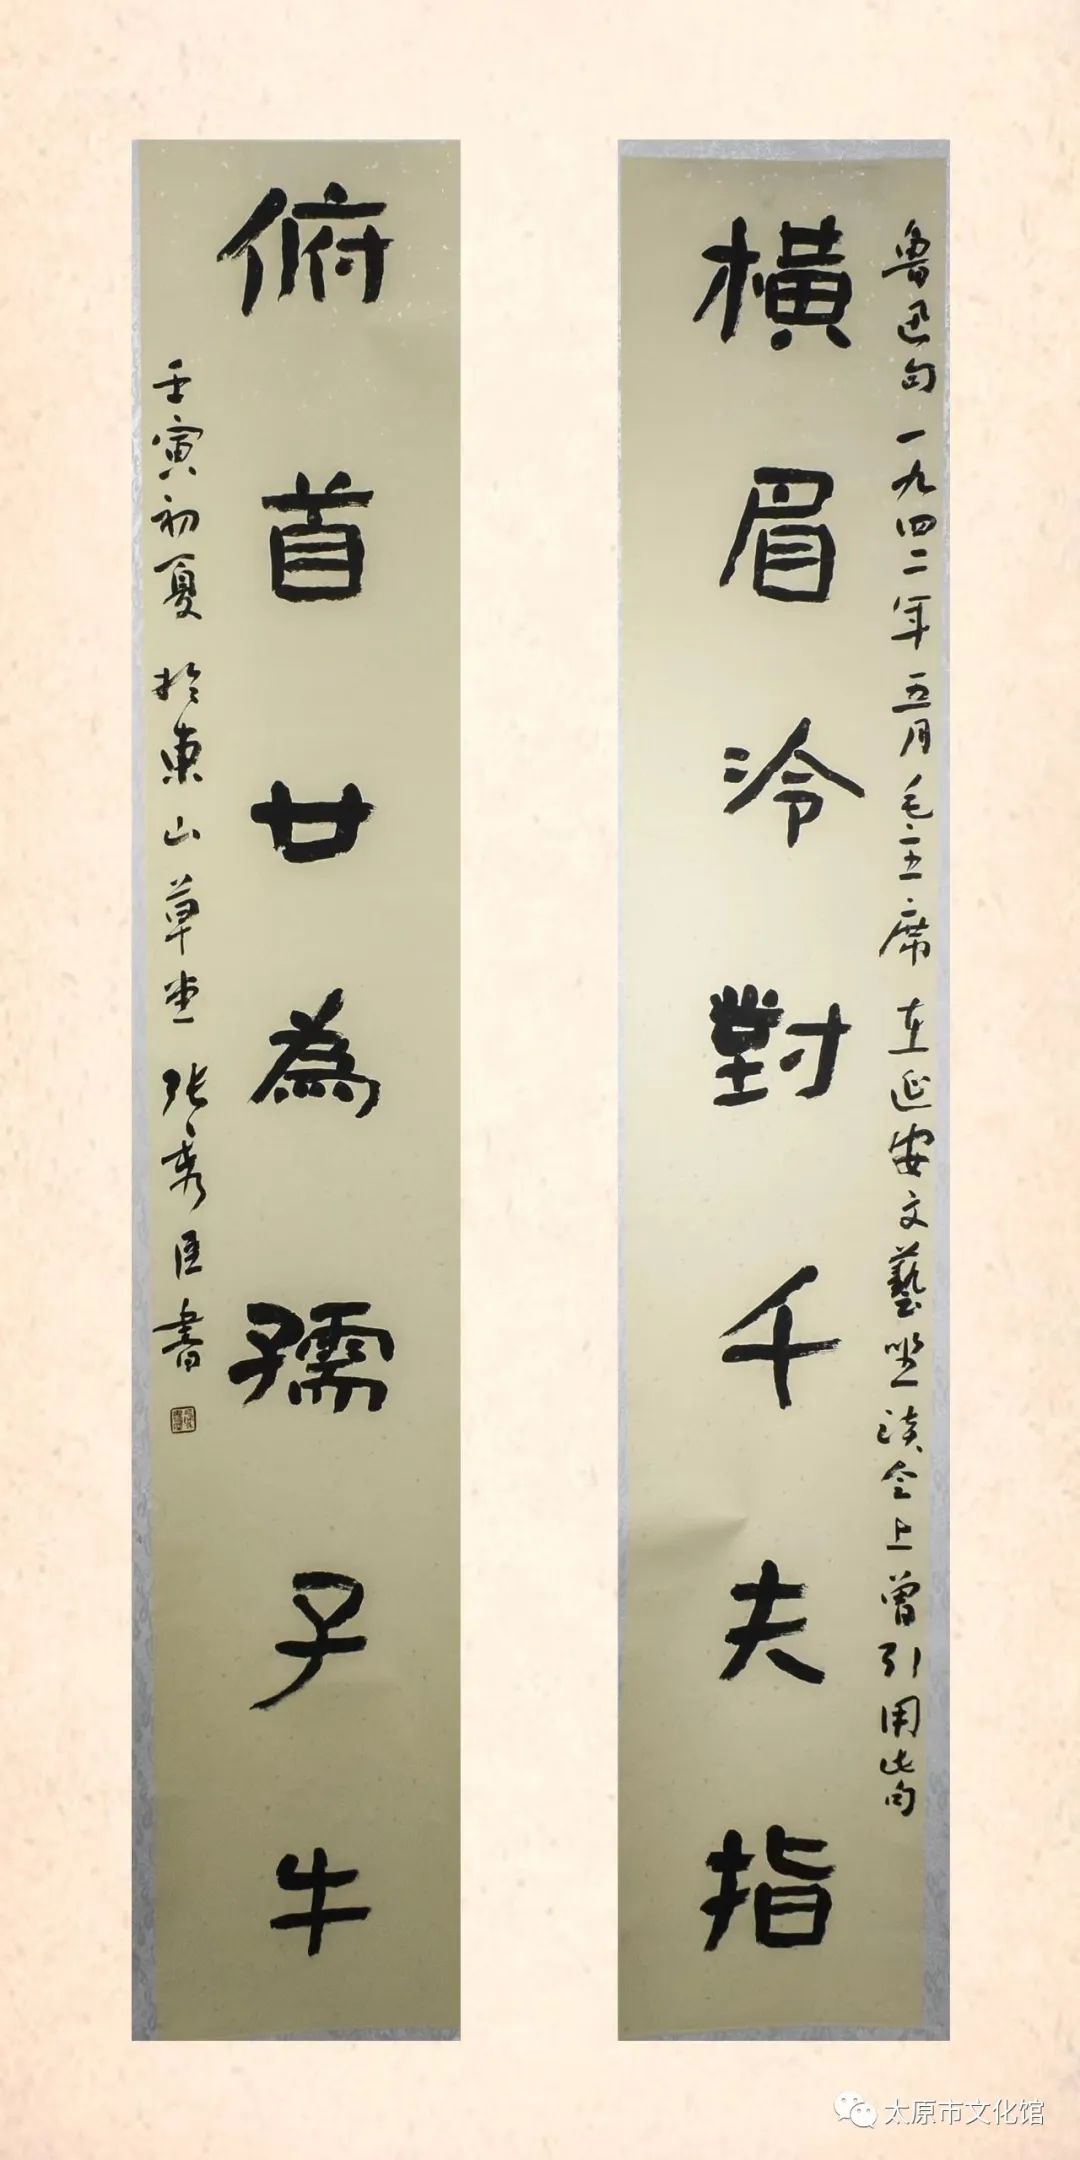 魯迅句 一九四二年五月毛主席在延安文藝坐談会上曾引用此句
橫眉冷對千夫指
俯首甘為孺子牛
壬寅初夏於東山草堂 张秀臣書
太原市文化馆